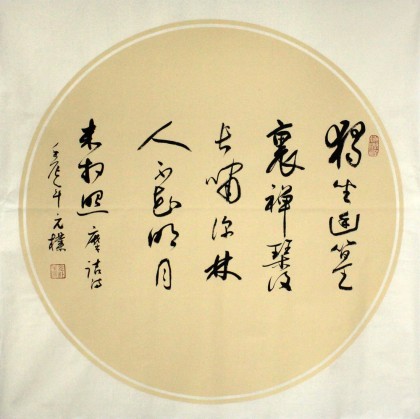 獨坐幽篁
裏彈琴復
長嘯深林
人不知明月
來相照 摩詰詩
壬辰年 元樸